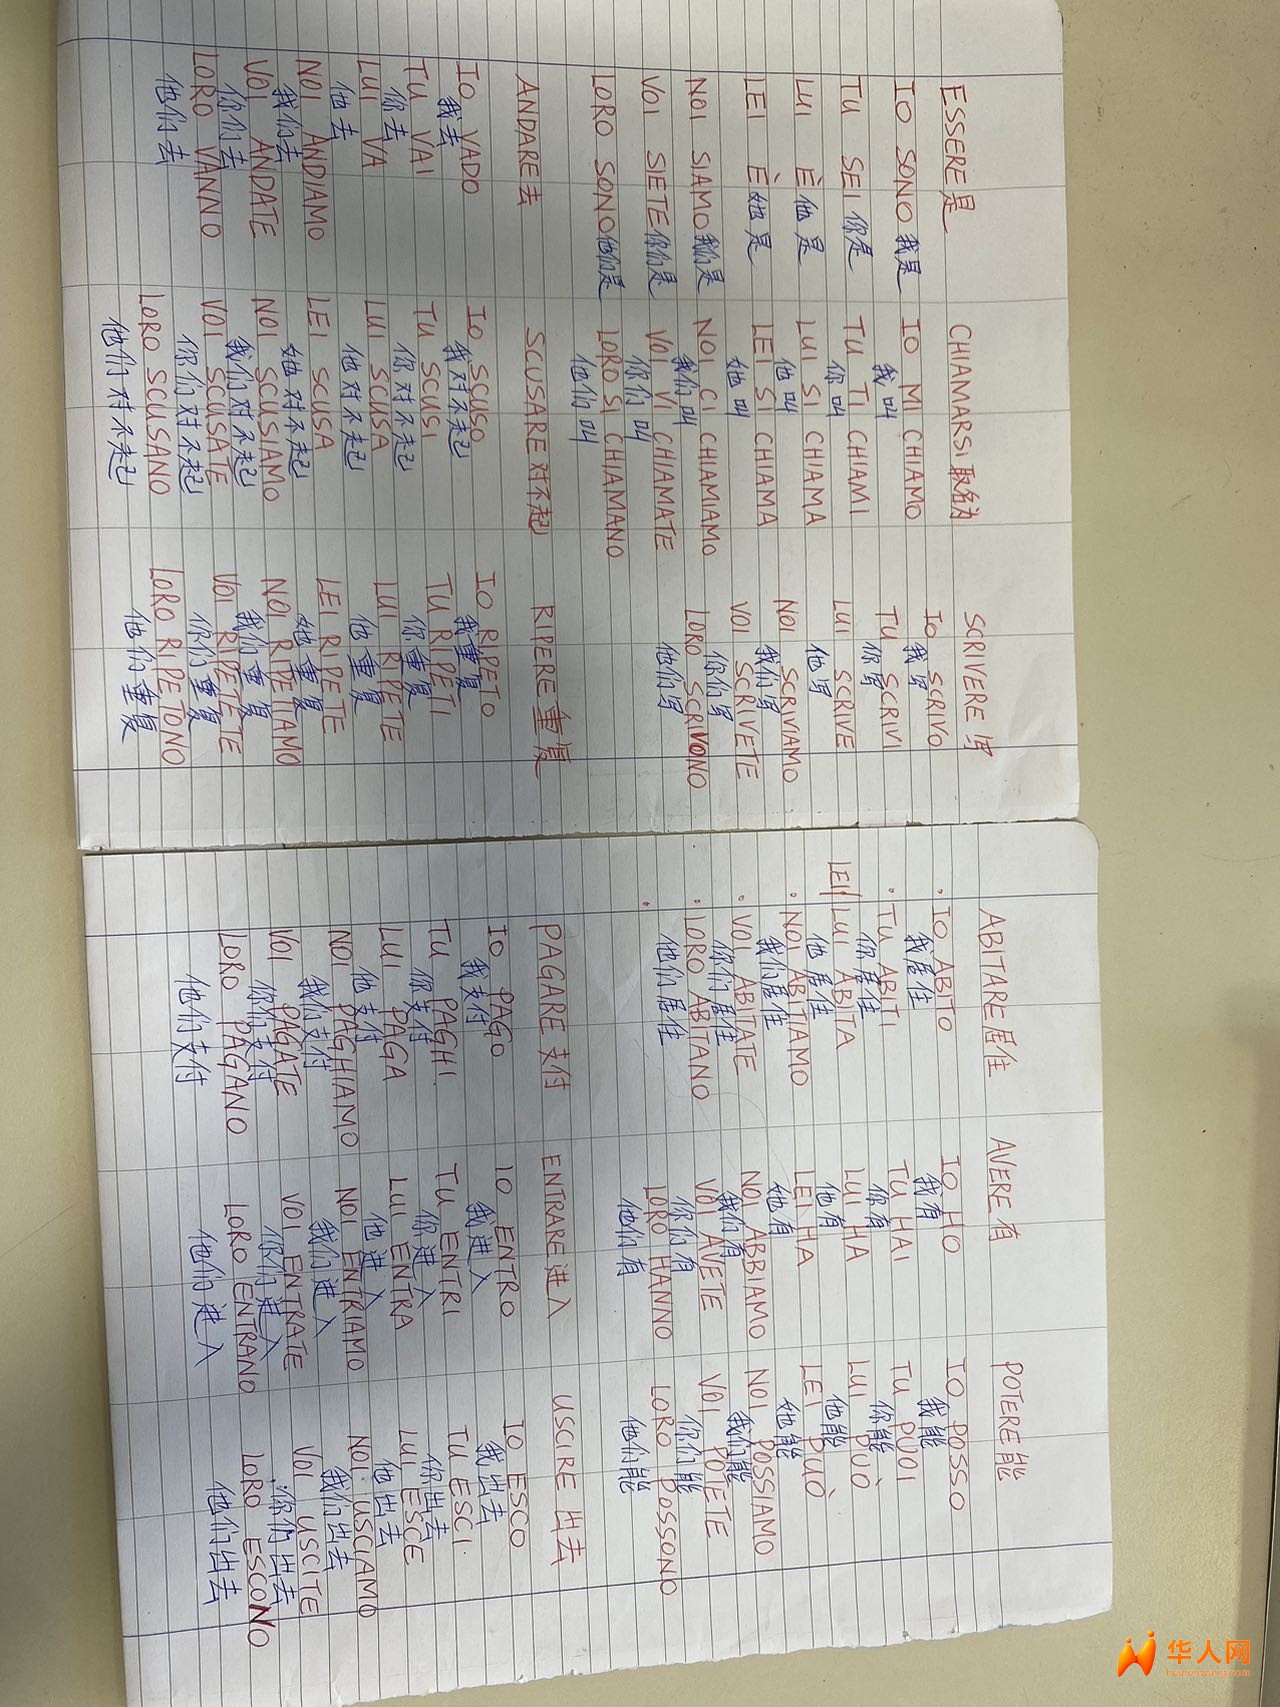 ESSERE 是
IO SONO 我是
TU SEI 你是
LUI È 他是
LEI È 她是
NOI SIAMO 我们是
VOI SIETE 你们是
LORO SONO 他们是
CHIAMARSI 取名为
IO MI CHIAMO
我叫
TU TI CHIAMI
你叫
LUI SI CHIAMA
他叫
LEI SI CHIAMA
她叫
NOI CI CHIAMIAMO
我们叫
VOI VI CHIAMATE
你们叫
LORO SI CHIAMANO
他们叫
SCRIVERE 写
IO SCRIVO
我写
TU SCRIVI
你写
LUI SCRIVE
他写
NOI SCRIVIAMO
我们写
VOI SCRIVETE
你们写
LORO SCRIVONO
他们写
ANDARE 去
IO VADO
我去
TU VAI
你去
LUI VA
他去
NOI ANDIAMO
我们去
VOI ANDATE
你们去
LORO VANNO
他们去
SCUSARE 对不起
IO SCUSO
我对不起
TU SCUSI
你对不起
LUI SCUSA
他对不起
LEI SCUSA
她对不起
NOI SCUSIAMO
我们对不起
VOI SCUSATE
你们对不起
LORO SCUSANO
他们对不起
RIPERE 重复
IO RIPETO
我重复
TU RIPETI
你重复
LUI RIPETE
他重复
LEI RIPETE
她重复
NOI RIPETIAMO
我们重复
VOI RIPETETE
你们重复
LORO RIPETONO
他们重复
ABITARE 居住
IO ABITO
我居住
TU ABITI
你居住
LEI/LUI ABITA
他居住
NOI ABITIAMO
我们居住
VOI ABITATE
你们居住
LORO ABITANO
他们居住
AVERE 有
IO HO
我有
TU HAI
你有
LUI HA
他有
LEI HA
她有
NOI ABBIAMO
我们有
VOI AVETE
你们有
LORO HANNO
他们有
POTERE 能
IO POSSO
我能
TU PUOI
你能
LUI PUÒ
他能
LEI PUÒ
她能
NOI POSSIAMO
我们能
VOI POTETE
你们能
LORO POSSONO
他们能
PAGARE 支付
IO PAGO
我支付
TU PAGHI
你支付
LUI PAGA
他支付
NOI PAGHIAMO
我们支付
VOI PAGATE
你们支付
LORO PAGANO
他们支付
ENTRARE 进入
IO ENTRO
我进入
TU ENTRI
你进入
LUI ENTRA
他进入
NOI ENTRIAMO
我们进入
VOI ENTRATE
你们进入
LORO ENTRANO
他们进入
USCIRE 出去
IO ESCO
我出去
TU ESCI
你出去
LUI ESCE
他出去
NOI USCIAMO
我们出去
VOI USCITE
你们出去
LORO ESCONO
他们出去
华人网